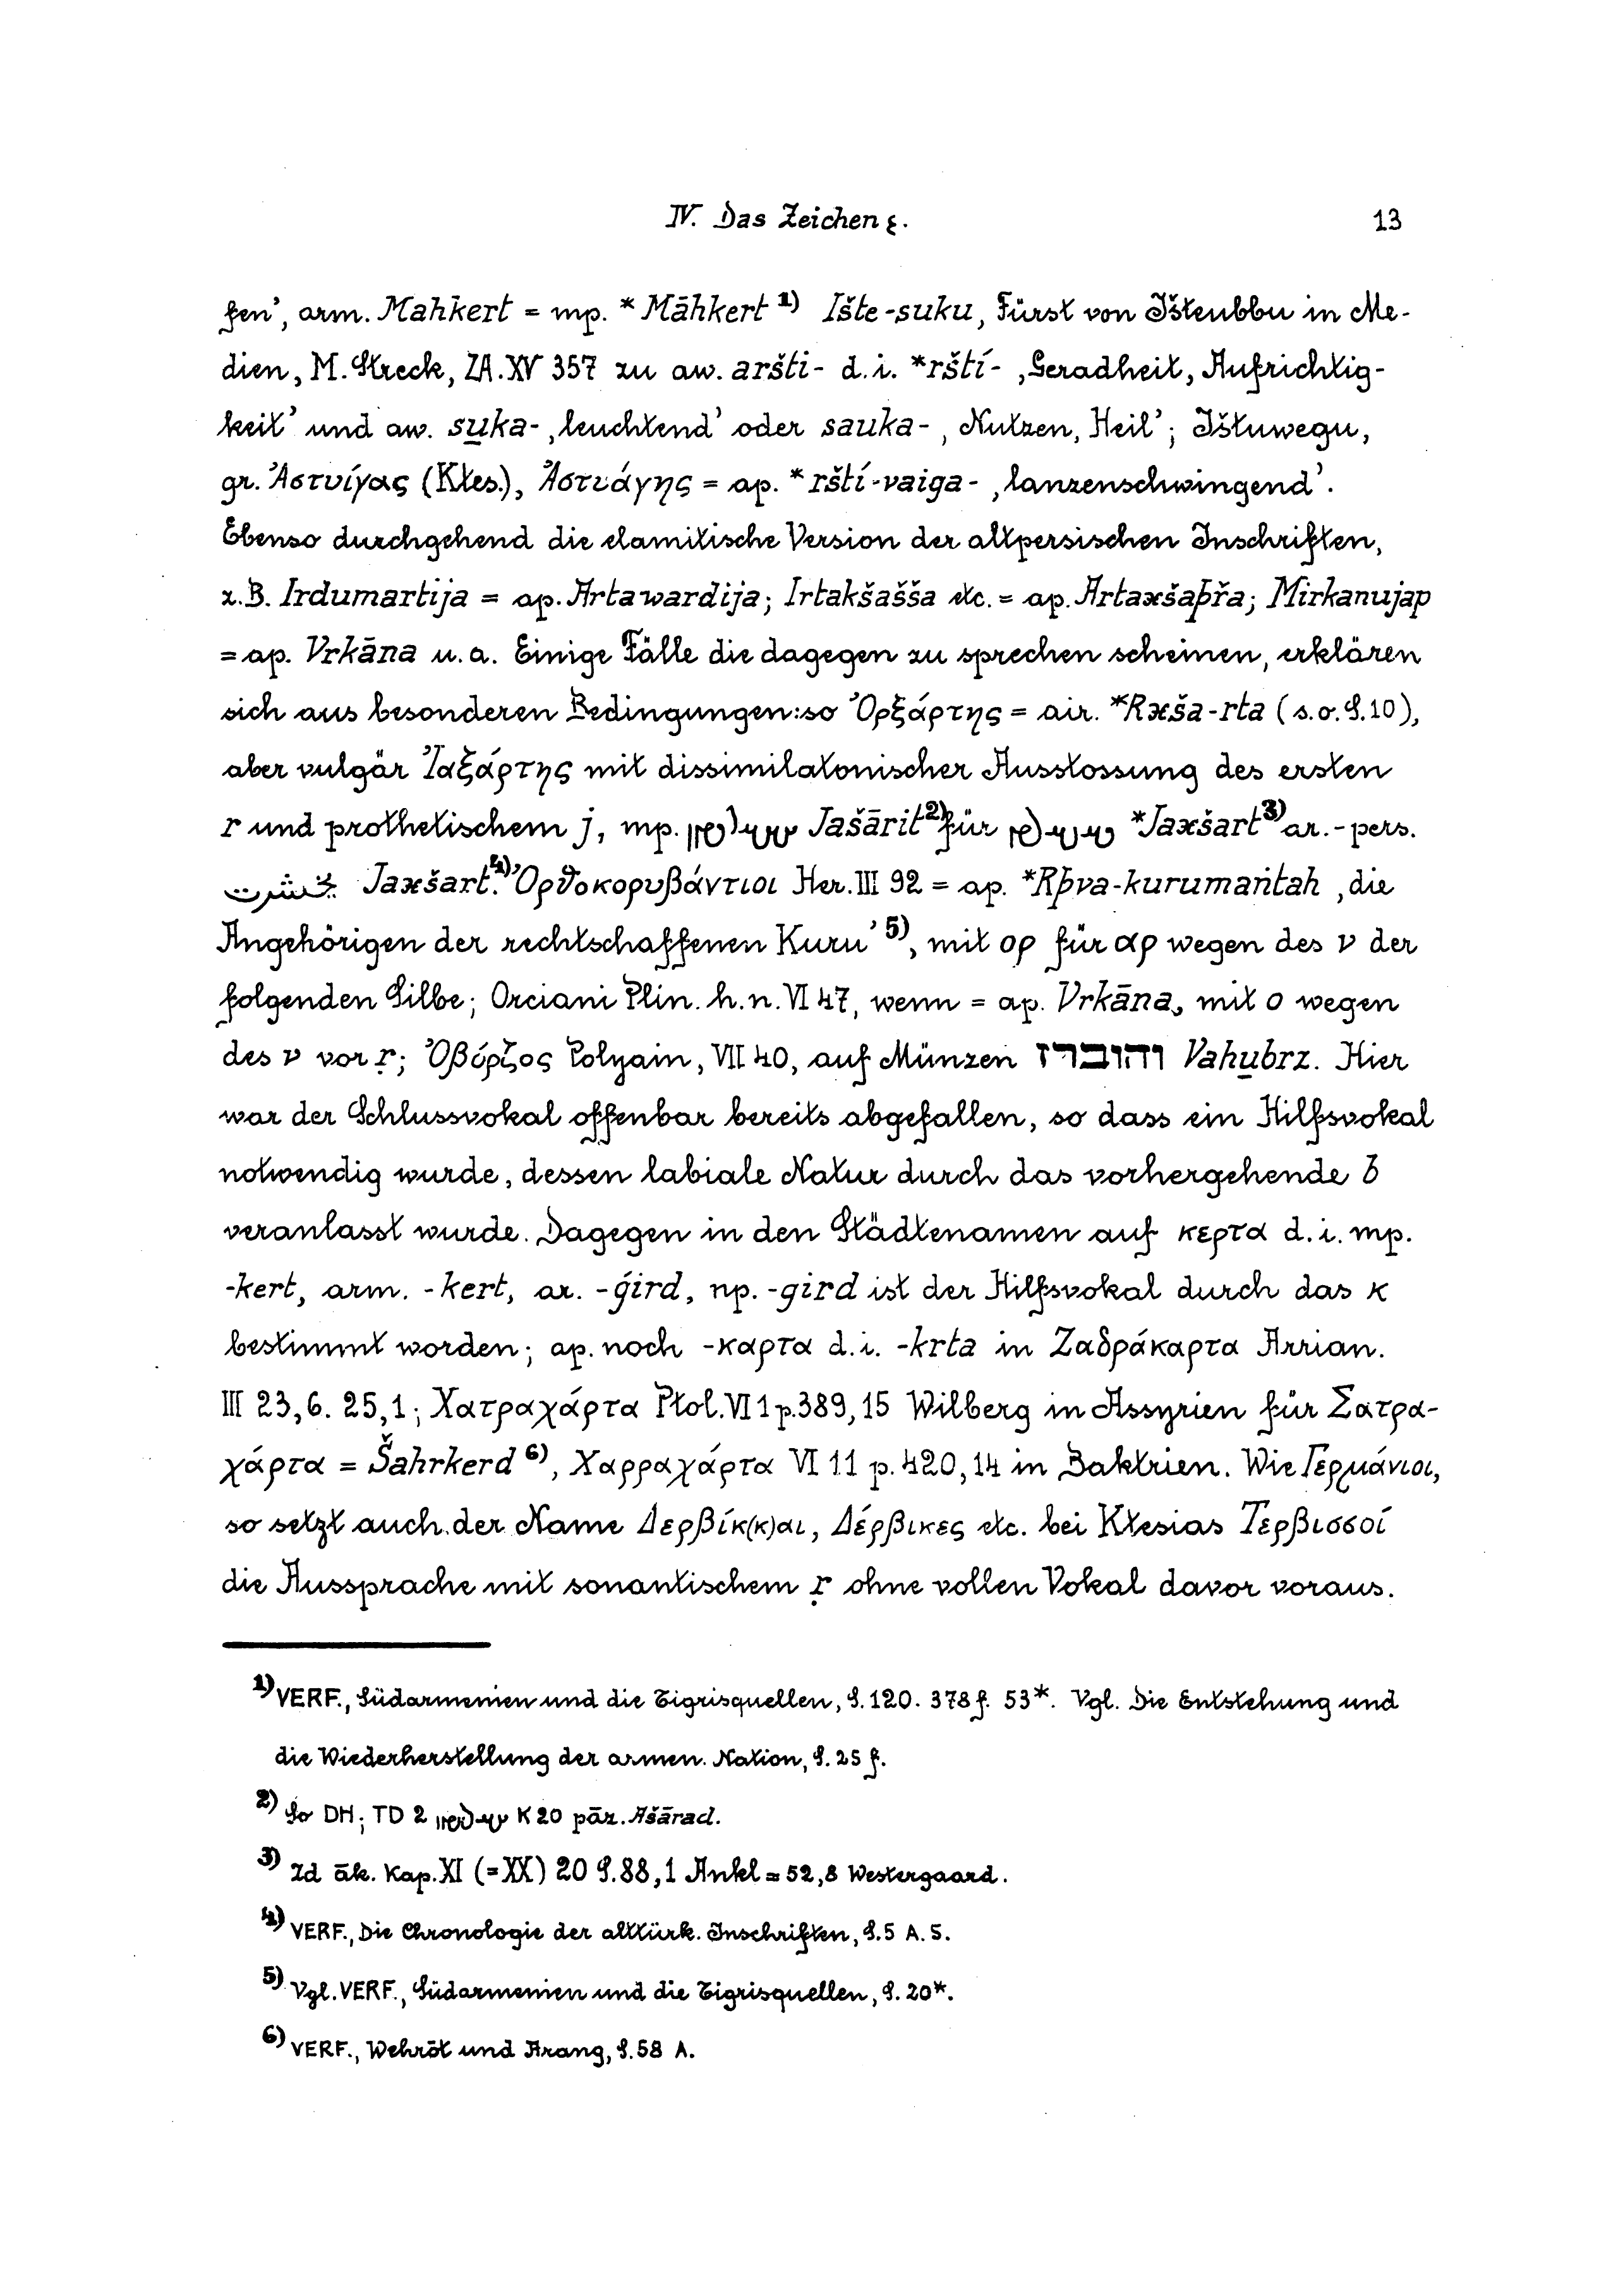 IV. Das Zeichen ε. 13
fen’, arm. Mahkert = mp. * Māhkert 1) Ište-suku, Fürst von Ištеubbu in Me-
dien, M. Streck, ZA. XV 357 zu aw. aršti- d.i. *rští- ‚Geradheit, Aufrichtig-
keit’ und aw. su̱ka- ‚leuchtend’ oder sauka- ‚ Nutzen, Heil’; Ištuwegu,
gr. Ἀστυίγας (Ktes.), Ἀστυάγης = ap. * rští-vaiga- ‚lanzenschwingend’.
Ebenso durchgehend die elamitische Version der altpersischen Inschriften,
z.B. Irdumartija = ap. Artawardija; Irtakšašša etc. = ap. Artaxšaþřa; Mirkanujap
= ap. Vrkāna u.a. Einige Fälle die dagegen zu sprechen scheinen, erklären
sich aus besonderen Bedingungen: so Ὀρξάρτης = air. *Rxša-rta (s.o. S. 10),
aber vulgär Ἰαξάρτης mit dissimilatonischer Ausstossung des ersten
r und prothetischem j, mp. Jašārit 2) für *Jaxšart 3) ar.-pers.
يخشرت Jaxšart. 4) Ὀρθοκορυβάντιοι Her. III 92 = ap. *Rþva-kurumaṅtah ‚die
Angehörigen der rechtschaffenen Kuru’ 5), mit ορ für αρ wegen des ν der
folgenden Silbe; Orciani Plin. h.n. VI 47, wenn = ap. Vrkāna, mit o wegen
des ν vor ṛ; Ὀβόρζος Polyain, VII 40, auf Münzen והוברז Vahu̱brz. Hier
war der Schlussvokal offenbar bereits abgefallen, so dass ein Hilfsvokal
notwendig wurde, dessen labiale Natur durch das vorhergehende b
veranlasst wurde. Dagegen in den Städtenamen auf κερτα d.i. mp.
-kert, arm. -kert, ar. -ǵird, np. -gird ist der Hilfsvokal durch das κ
bestimmt worden; ap. noch -καρτα d.i. -krta in Ζαδράκαρτα Arrian.
III 23,6. 25,1; Χατραχάρτα Ptol. VI 1 p. 389,15 Wilberg in Assyrien für Σατρα-
χάρτα = Šahrkerd 6), Χαρραχάρτα VI 11 p. 420,14 in Baktrien. Wie Γερμάνιοι,
so setzt auch der Name Δερβίκ(κ)αι, Δέρβικες etc. bei Ktesias Τερβισσοί
die Aussprache mit sonantischem ṛ ohne vollen Vokal davor voraus.
1) VERF., Südarmenien und die Tigrisquellen, S. 120. 378 f. 53*. Vgl. Die Entstehung und
die Wiederherstellung der armen. Nation, S. 25 f.
2) So DH; TD 2 K 20 pāz. Ašārad.
3) Zd āk. Kap. XI (=XX) 20 S. 88,1 Ankl = 52,8 Westergaard.
4) VERF., Die Chronologie der alttürk. Inschriften, S. 5 A. 5.
5) Vgl. VERF., Südarmenien und die Tigrisquellen, S. 20*.
6) VERF., Wehrōt und Arang, S. 58 A.